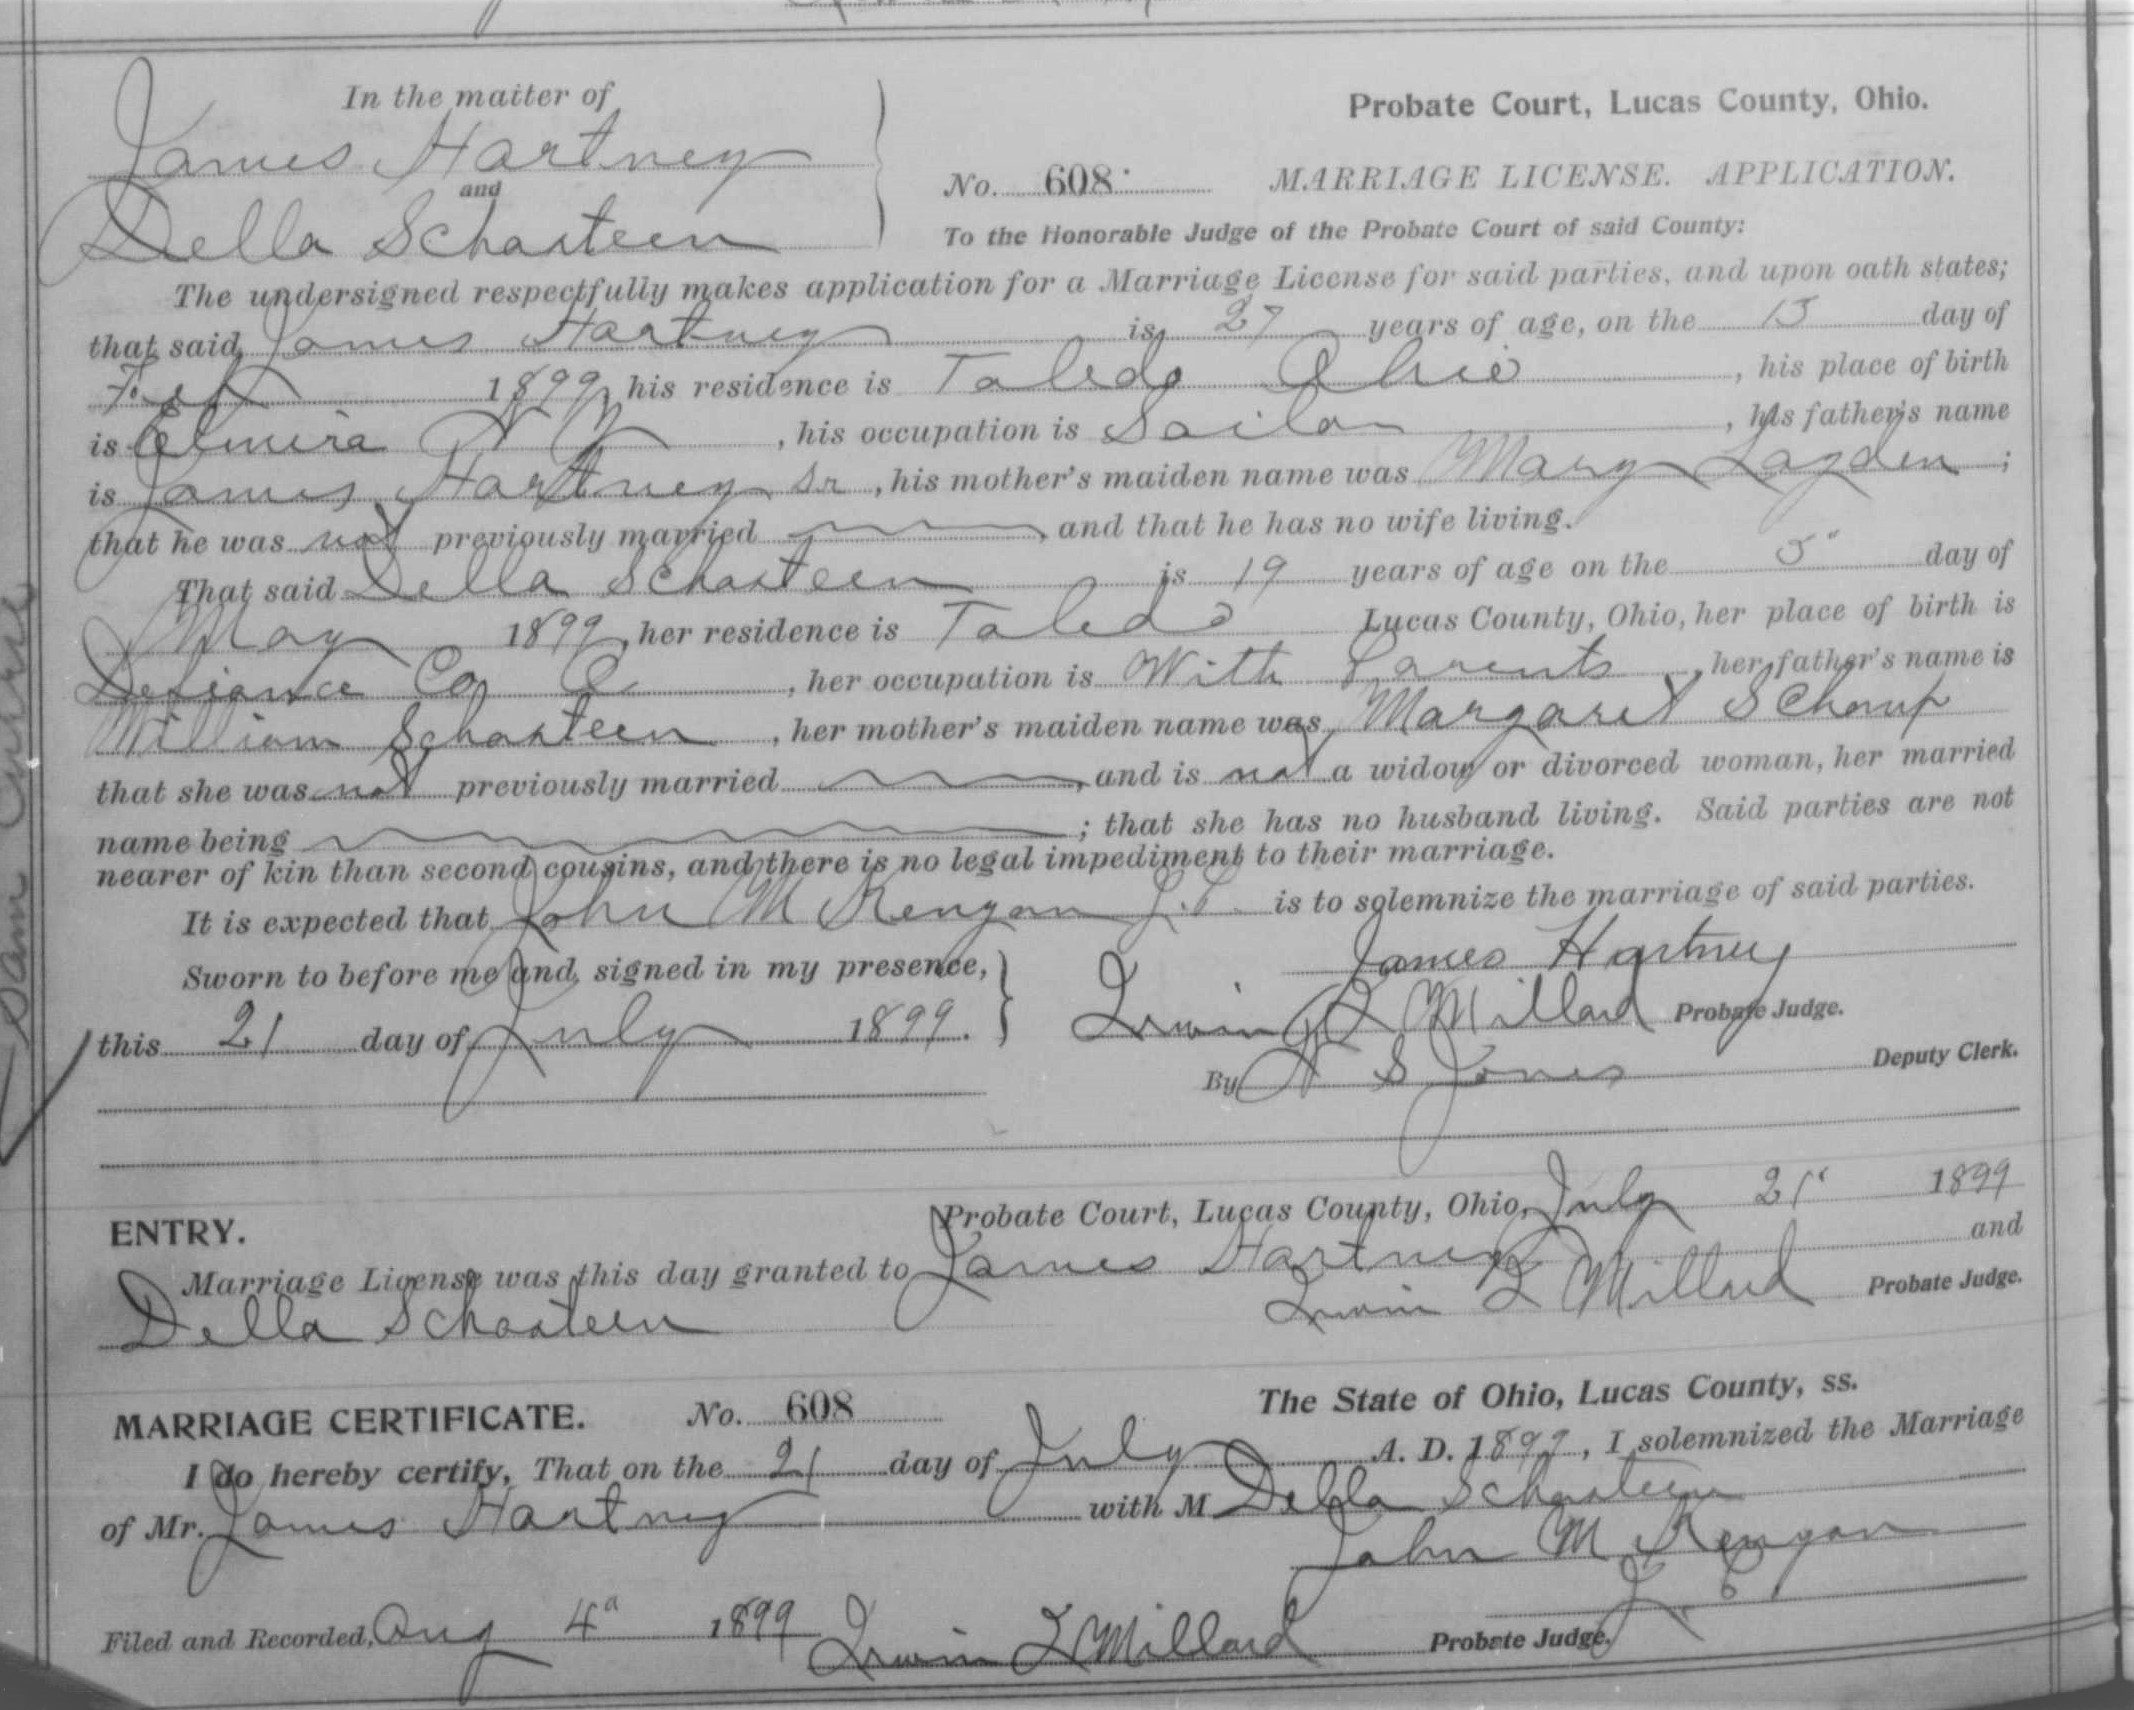 In the matter of
James Hartney
and
Della Schasteen
Probate Court, Lucas County, Ohio.
No. 608 MARRIAGE LICENSE. APPLICATION.
To the Honorable Judge of the Probate Court of said County:
The undersigned respectfully makes application for a Marriage License for said parties, and upon oath states;
that said James Hartney is 27 years of age, on the 15 day of
Feb 1899, his residence is Toledo Ohio, his place of birth
is Elmira N Y, his occupation is Sailor, his father's name
is James Hartney Sr, his mother's maiden name was Mary Lagden;
that he was not previously married and that he has no wife living.
That said Della Schasteen is 19 years of age on the 5" day of
May 1899, her residence is Toledo Lucas County, Ohio, her place of birth is
Defiance Co O, her occupation is With Parents, her father's name is
William Schasteen, her mother's maiden name was Margaret Schoup
that she was not previously married, and is not a widow or divorced woman, her married
name being ; that she has no husband living. Said parties are not
nearer of kin than second cousins, and there is no legal impediment to their marriage.
It is expected that John M Rengan J.P. is to solemnize the marriage of said parties.
Sworn to before me and signed in my presence,
this 21 day of July 1899.
James Hartney
Irwin I Millard Probate Judge.
By N S Jones Deputy Clerk.
ENTRY. Probate Court, Lucas County, Ohio, July 21" 1899
Marriage License was this day granted to James Hartney and
Della Schasteen Irwin I Millard Probate Judge.
MARRIAGE CERTIFICATE. No. 608 The State of Ohio, Lucas County, ss.
I do hereby certify, That on the 21 day of July A. D. 1899, I solemnized the Marriage
of Mr. James Hartney with M Della Schasteen
John M Rengan
J. P.
Filed and Recorded, Aug 4" 1899 Irwin I Millard Probate Judge.